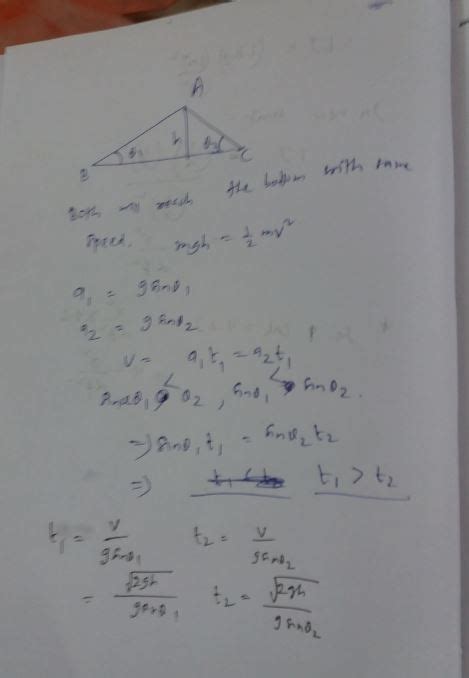 A
h
θ₁
θ₂
B
C
Both will reach the bottom with same
speed. mgh = 1/2 mv²
a₁ = g sinθ₁
a₂ = g sinθ₂
v = a₁t₁ = a₂t₁
θ₁ < θ₂, sinθ₁ < sinθ₂.
⇒ sinθ₁ t₁ = sinθ₂ t₂
⇒ t₁ > t₂
t₁ = v/(g sinθ₁) t₂ = v/(g sinθ₂)
= √2gh/(g sinθ₁) t₂ = √2gh/(g sinθ₂)